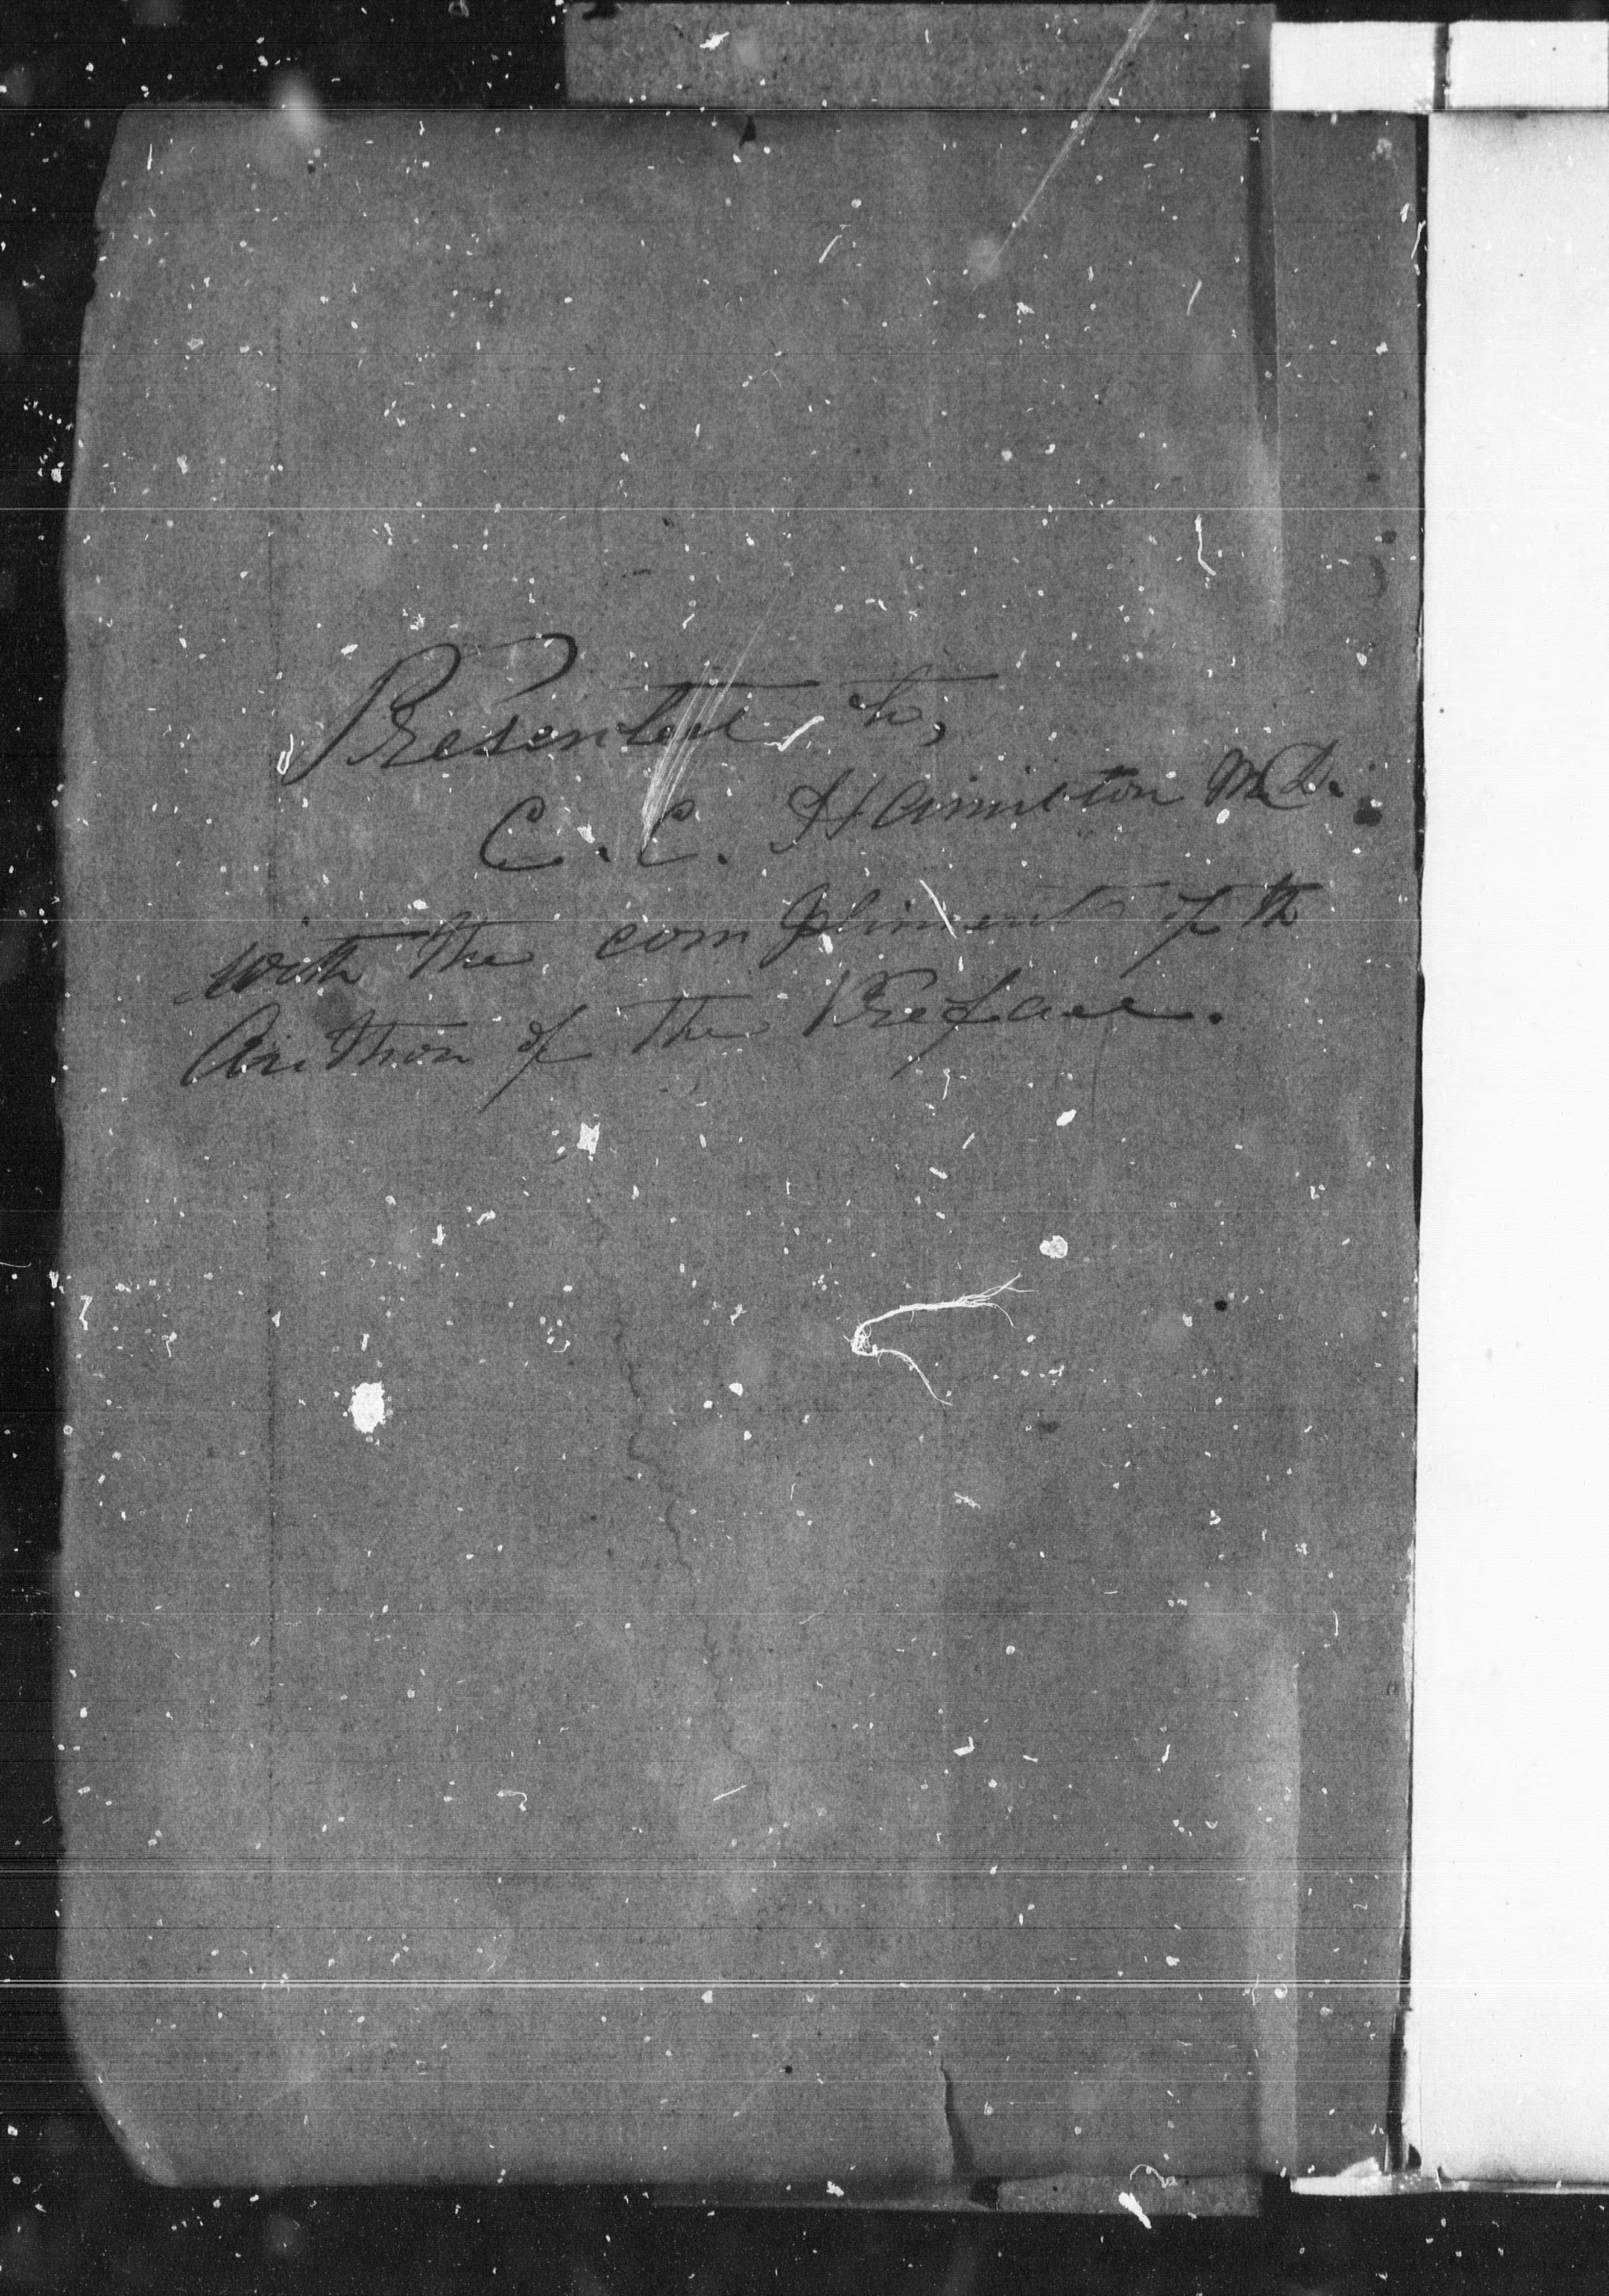 Presented to,
C. C. Hamilton M.D.
with the compliments of the
Author of the Preface.